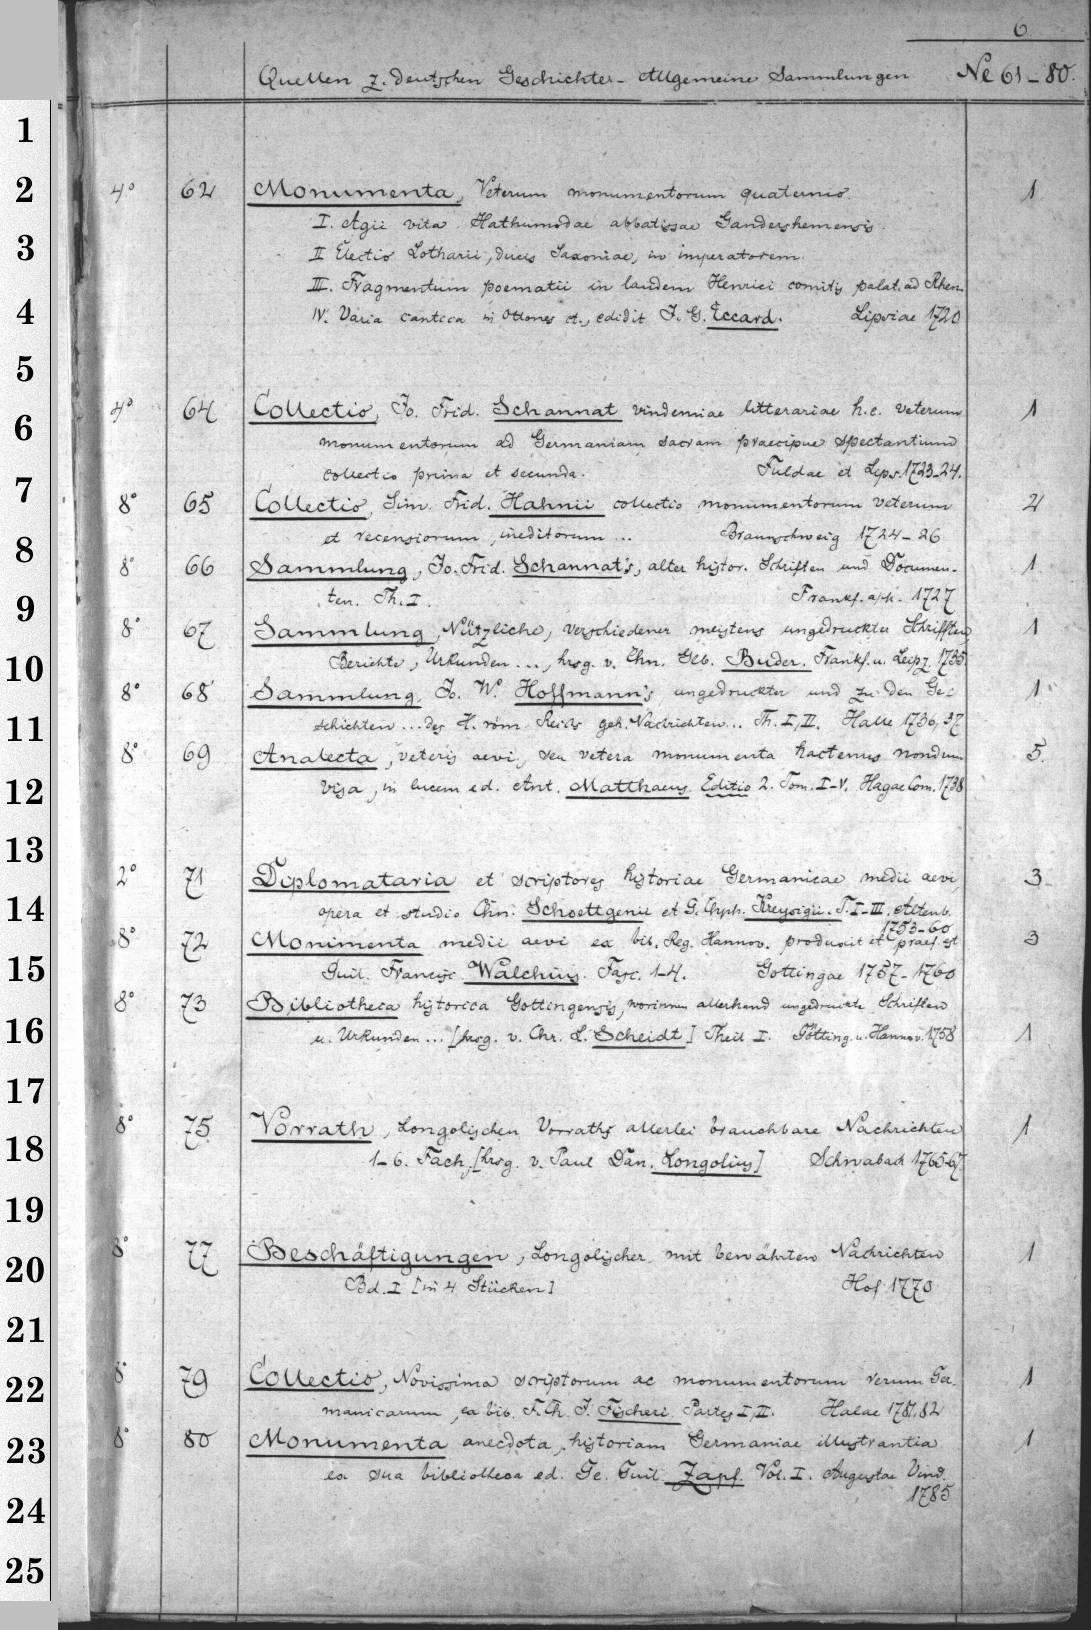 6
Quellen z. deutschen Geschichte - Allgemeine Sammlungen № 61-80.
1
2 4° 62 Monumenta, Veterum monumentorum quaternio. 1
I. Agii vita Hathumodae abbatissae Gandershemensis
3 II Electio Lotharii, ducis Saxoniae, in imperatorem
III. Fragmentum poematii in laudem Henrici comitis palat. ad Rhen.
4 IV. Varia cantica in Ottones et., edidit J. G. Eccard. Lipsiae 1720
5
6 4° 64 Collectio, Jo. Frid. Schannat vindemiae litterariae h.e. veterum 1
monumentorum ad Germaniam sacram praecipue spectantium
7 collectio prima et secunda. Fuldae et Lips. 1723-24.
8° 65 Collectio, Sim. Frid. Hahnii collectio monumentorum veterum 2
8 et recensiorum, ineditorum ... Braunschweig 1724-26
8° 66 Sammlung, Jo. Frid. Schannat's, alter histor. Schriften und Documen- 1
9 ten. Th. I. Frankf. a/M. 1727
8° 67 Sammlung, Nützliche, verschiedener meistens ungedruckter Schrifften, 1
10 Berichte, Urkunden ..., hrsg. v. Chn. Geb. Buder. Frankf. u. Leipz. 1735.
8° 68 Sammlung, Jo. W. Hoffmann's ungedruckter und zu den Ge- 1
11 schichten ... des H. röm. Reichs geh. Nachrichten .. Th. I, II. Halle 1736, 37
8° 69 Analecta, veteris aevi, seu vetera monumenta hactenus nondum 5.
12 visa, in lucem ed. Ant. Matthaeus. Editio 2. Tom. I-V. Hagae Com. 1738
13
2° 71 Diplomataria et scriptores historiae Germanicae medii aevi, 3
14 opera et studio Chn. Schoettgenii et G. Chph. Kreysigii. T. I-III. Altenb.
1753-60
8° 72 Monimenta medii aevi ex bib. Reg. Hannov. produxit et praef. est 3
15 Guil. Francisc. Walchius. Fasc. 1-4. Gottingae 1757-1760
8° 73 Bibliotheca historica Gottingensis, worinnen allerhand ungedruckte Schriften
16 u. Urkunden ... [hrsg. v. Chr. L. Scheidt] Theil I. Götting. u. Hannov. 1758 1
17
8° 75 Vorrath, Longolischen Vorraths allerlei brauchbare Nachrichten 1
18 1-6. Fach, [hrsg. v. Paul Dan. Longolius] Schwabach 1765-67.
19
8° 77 Beschäftigungen, Longolischer mit bewährten Nachrichten 1
20 Bd. I [in 4 Stücken] Hof 1770
21
8° 79 Collectio, Novissima scriptorum ac monumentorum rerum Ger- 1
22 manicarum, ex bib. F. Ch. J. Fischeri Partes I, II. Halae 1781.82
23 8° 80 Monumenta anecdota, historiam Germaniae illustrantia 1
ex sua bibliotheca ed. Ge. Guil. Zapf. Vol. I. Augustae Vind.
24 1785
25